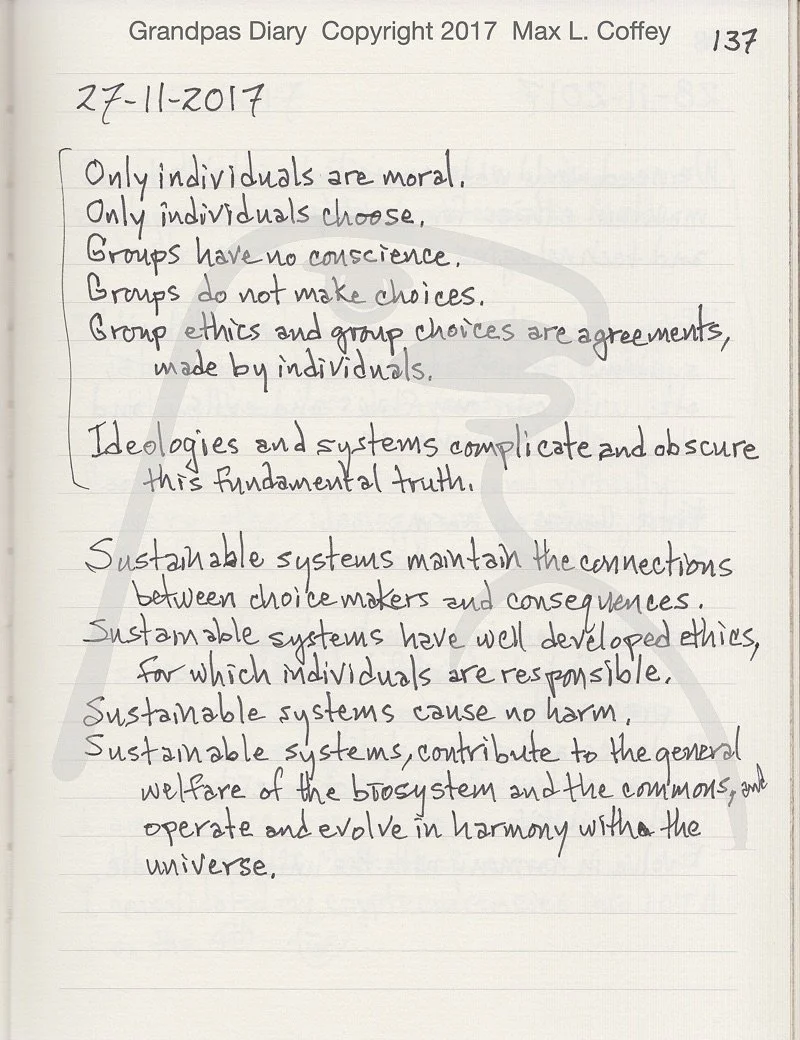 Grandpas Diary Copyright 2017 Max L. Coffey
137
27-11-2017
Only individuals are moral.
Only individuals choose.
Groups have no conscience.
Groups do not make choices.
Group ethics and group choices are agreements,
made by individuals.
Ideologies and systems complicate and obscure
this fundamental truth.
Sustainable systems maintain the connections
between choice makers and consequences.
Sustainable systems have well developed ethics,
for which individuals are responsible.
Sustainable systems cause no harm.
Sustainable systems, contribute to the general
welfare of the biosystem and the commons, and
operate and evolve in harmony with the
universe.